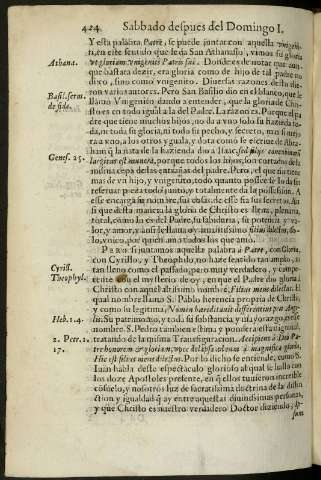 424 Sabbado despues del Domingo I.
Y esta palabra Patre, se puede juntar con aquella vnigeni-
ti, en este sentido que le da San Athanasio, vimos su gloria
Athana. vt gloriam vnigeniti Patris sui. Donde es de notar que aun-
que bastata dezir, era gloria como de hijo de tal padre no
dixo, sino como vnigenito. Diuersas razones desto die-
Basil. serm. ron varios autores. Pero San Basilio dio en el blanco, que le
de fide. llamò Vnigenito dando a entender, que la gloria de Chri-
sto es en todo igual a la del Padre. La razon es. Porque el pa
dre que tiene muchos hijos, no da a vno toda su hazienda to-
da, ni toda su gloria, ni todo su pecho, y secreto,
a vno, a los otros y guala, y dota como se escriue de Abra-
Genes. 25. ham q̃ la nata de la hazienda dio a Isac,
largitus est munera, porque todos los hijos, son cortados de la
misma cepa de las entrañas del padre. Pero, el que no tiene
mas de vn hijo, y vnigenito, todo quanto possee se lo da sin
reseruar pieza todo junto, y totalmente da la possession. A
esse encarga su nombre, sus casas, de esse fia sus secretos. As
si que desta manera la gloria de Christo es llena, plenaria,
total, como la es del Padre, su sabiduria, su potencia y va-
lor, y amor, y assi se llama vnissimo filius dilectus, so-
lo, vnico, por quien an a todos los que amo.
Pero si juntamos aquella palabra à Patre, con Gloria,
Cyrill. con Cyrillo, y Theophilo, no haze sentido tan amplo, ni
Theophyl. tan lleno como el passado, pero muy verdadero, y compe-
tente con el mysterio de oy, en que el Padre dio gloria à
Christo con aquel altissimo nombre, Filius meus dilectus. El
qual nombre llama S. Pablo herencia propria de Christo,
Heb. 1.4. y como la legitima, Nomen hæreditauit differentius præ Ange-
lis. Su patrimonio, y toda su substancia, y mayorazgo, es este
nombre. S. Pedro tambien estima y pondera esta dignidad,
2. Petr. 1. tratando de la misma Transfiguracion. Accipiens à Deo Pa-
17. tre honorem & gloriam, voce delapsa ad eum à magnifica gloria,
Hic est filius meus dilectus. Por lo dicho se entiende, como S.
Iuan habla deste espectaculo glorioso al qual se hallò con
los doze Apostoles presente, en q̃ ellos tuuieron increible
cõsuelo, y nosotros luz de sacratissima doctrina de la distin
ction y igualdad q̃ ay entre aquestas diuinissimas personas,
y que Christo es nuestro verdadero Doctor diziendo,